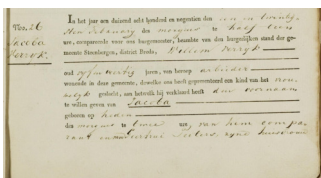 Nos. 26
Jacoba
Verryk.
In het jaar een duizend acht honderd en negentien den een en twintig-
sten February des morgens te half elven
ure, compareerde voor ons burgemeester, beambte van den burgerlijken stand der ge-
meente Steenbergen, district Breda, Willem Verryk
oud vyf en veertig jaren, van beroep arbeider
woonende in deze gemeente, dewelke ons heeft gepresenteerd een kind van het vrou-
welyk geslacht, aan hetwelk hij verklaard heeft den voornaam
te willen geven van Jacoba
geboren op heden
des morgens te twee ure, van hem compa-
rant en zyne huisvrouw